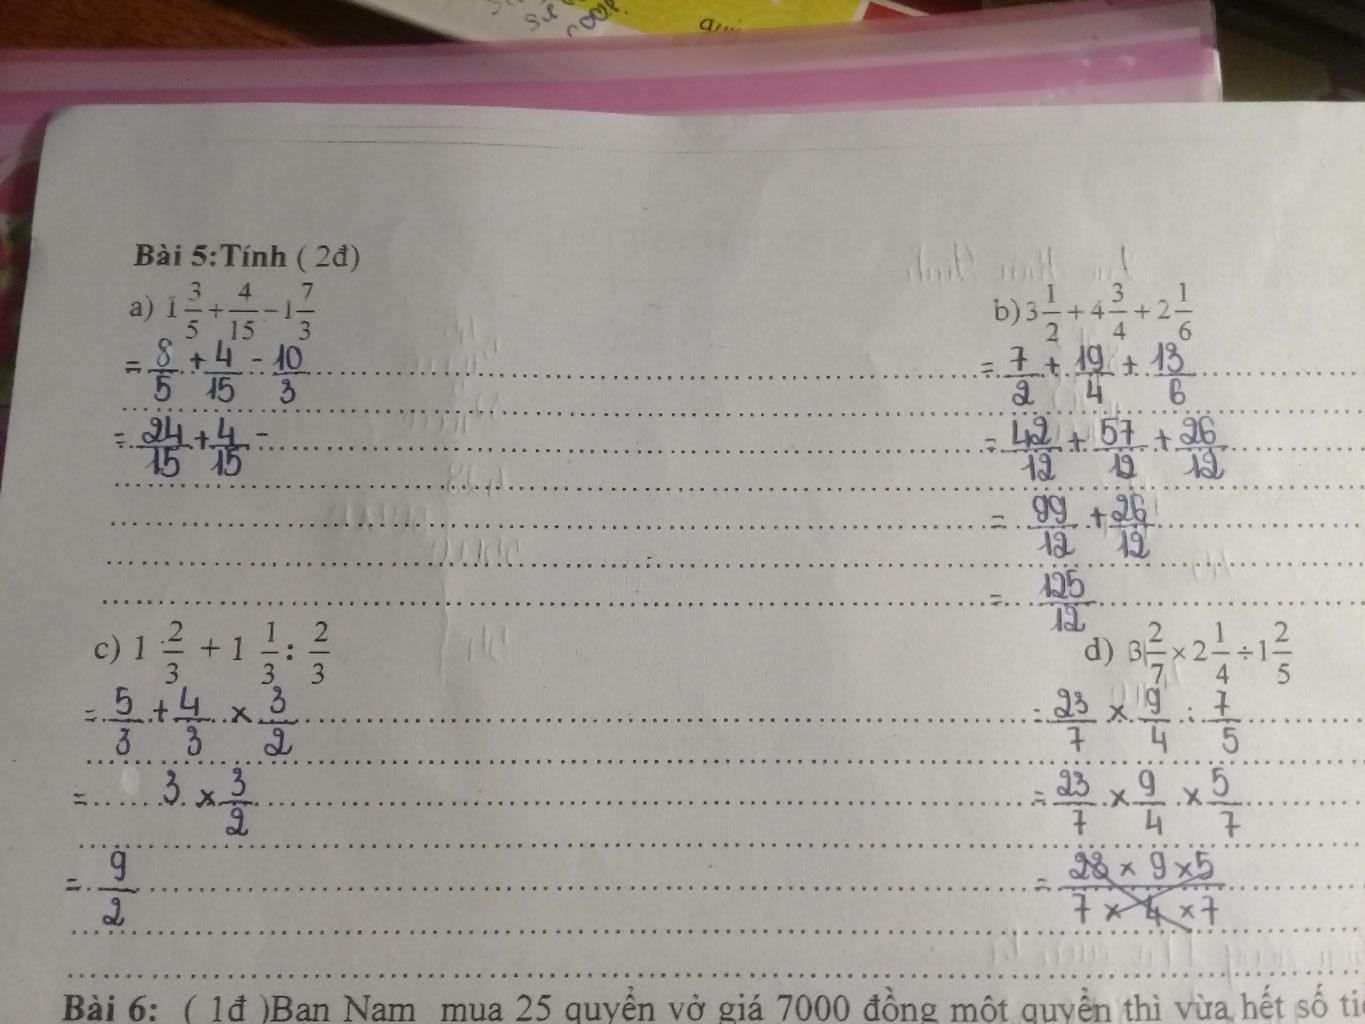 Bài 5:Tính ( 2đ)
a) 1 3/5 + 4/15 − 1 7/3
= 8/5 + 4/15 - 10/3
= 24/15 + 4/15 -
b) 3 1/2 + 4 3/4 + 2 1/6
= 7/2 + 19/4 + 13/6
= 42/12 + 57/12 + 26/12
= 99/12 + 26/12
= 125/12
c) 1 2/3 + 1 1/3 : 2/3
= 5/3 + 4/3 × 3/2
= 3 × 3/2
= 9/2
d) 3 2/7 × 2 1/4 ÷ 1 2/5
= 23/7 × 9/4 : 7/5
= 23/7 × 9/4 × 5/7
= 23 × 9 × 5 / 7 × 4 × 7
Bài 6: ( 1đ )Bạn Nam mua 25 quyển vở giá 7000 đồng một quyển thì vừa hết số